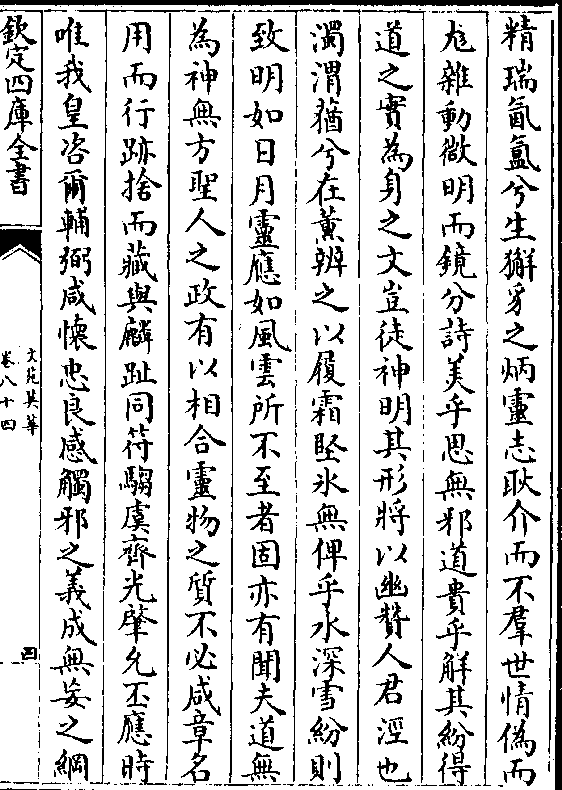 精瑞氤氲兮生獬豸之炳靈志耿介而不羣世情偽而
尨雜動微明而鏡分詩美乎思無邪道貴乎解其紛得
道之實為身之文豈徒神明其形將以幽贊人君涇也
濁渭蕕兮在薫辨之以履霜堅氷無俾乎水深雪紛則
致明如日月靈應如風雲所不至者固亦有聞夫道無
為神無方聖人之政有以相合靈物之質不必咸章名
用而行跡捨而藏與麟趾同符騶虞齊光肇允丕應時
唯我皇咨爾輔弼咸懷忠良感觸邪之義成無妄之綱
欽定四庫全書
文苑英華
卷八十四
四